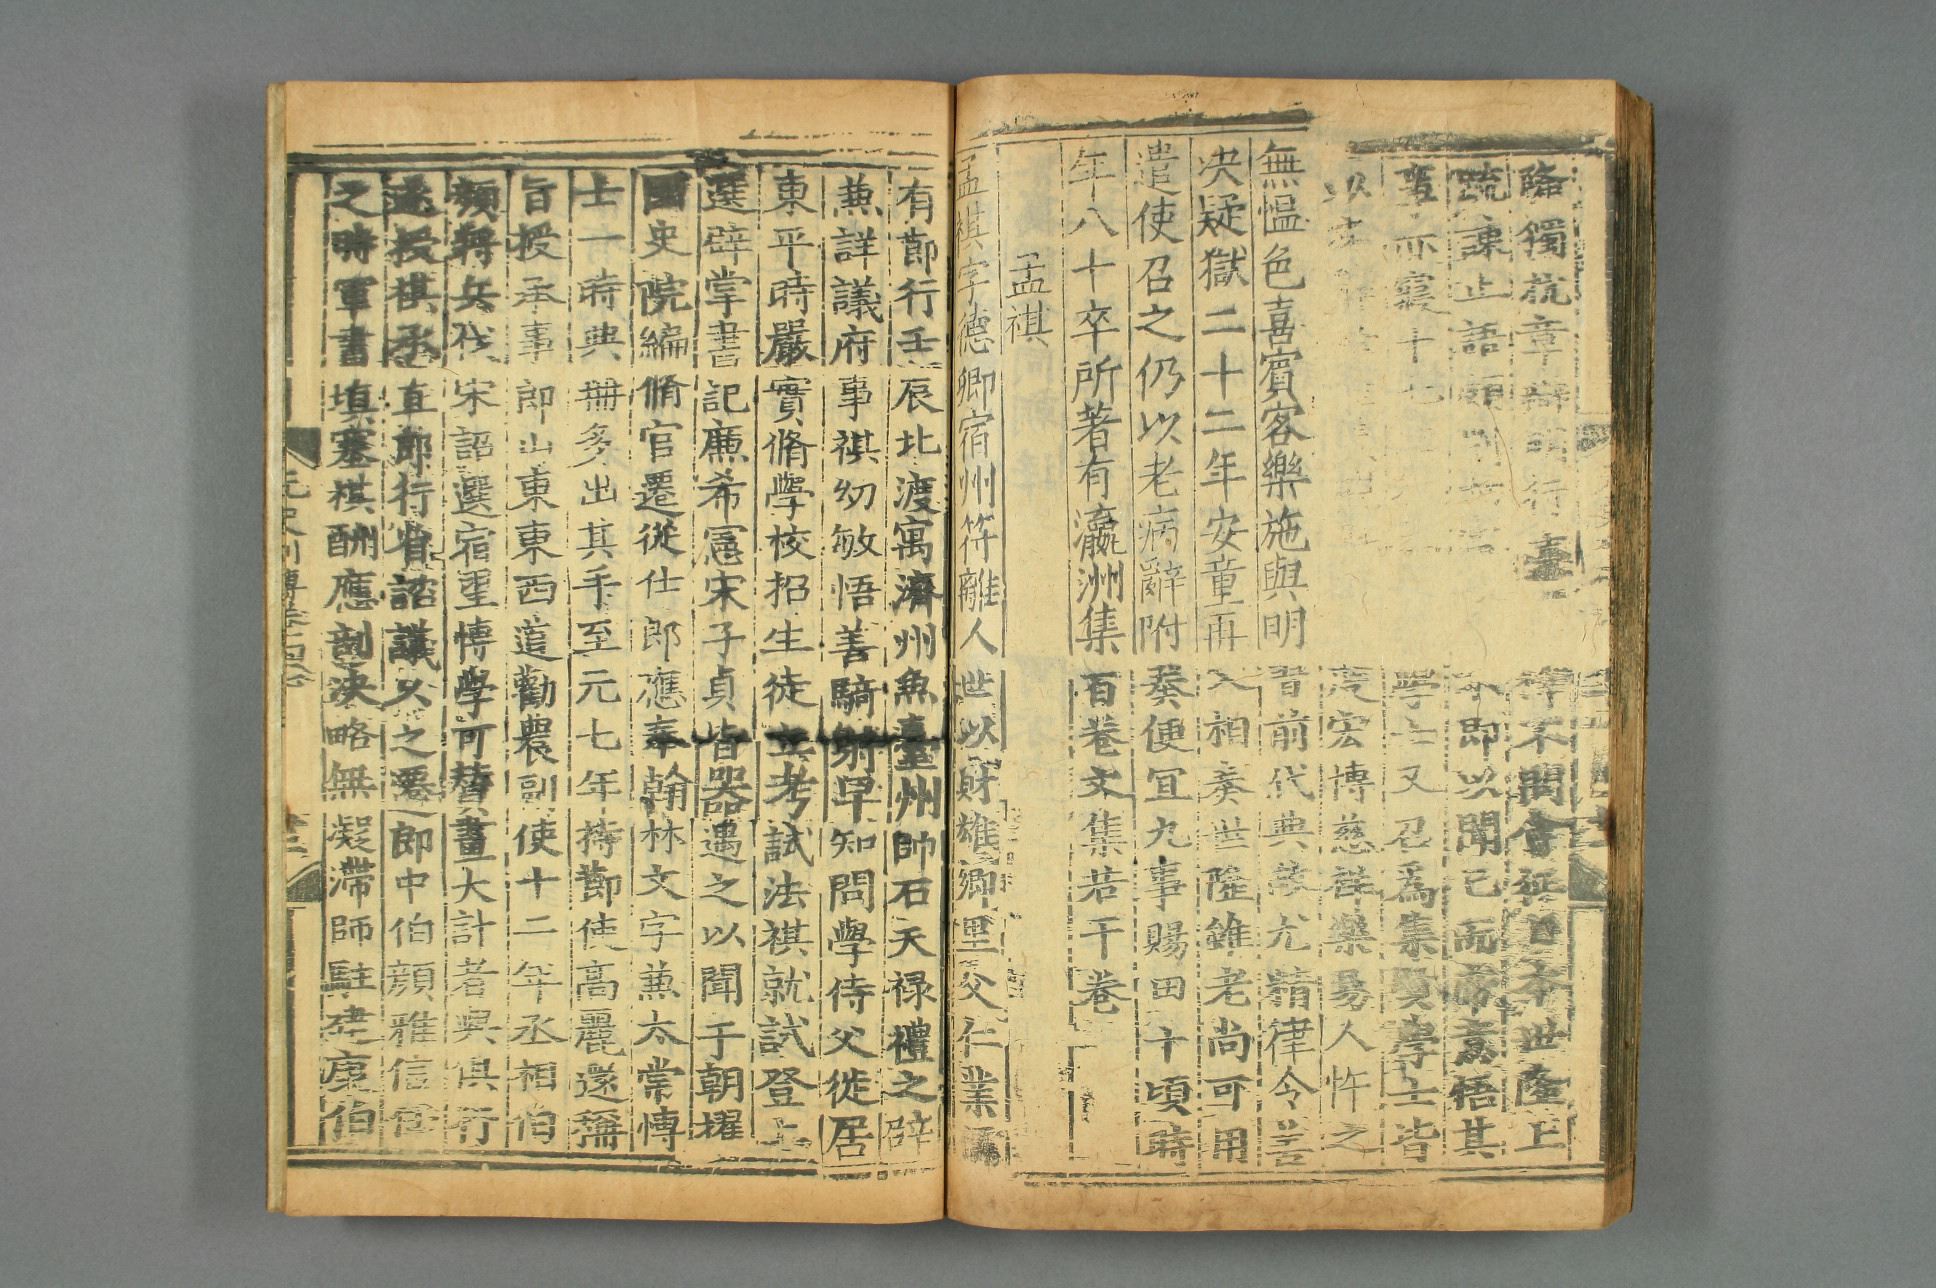 降獨杭章辯謂行臺禪不閒會征日本世隆上
疏諫止語頗不即以聞已而帝意悟其
亦寢十七學士又召爲集賢學士皆
以度宏博慈祥樂易人忤之
無慍色喜賓客樂施與明習前代典故尤精律令善
决疑獄二十二年安童再入相奏世隆雖老尚可用
遣使召之仍以老病辭附奏便宜九事賜田十頃時
年八十卒所著有瀛洲集百卷文集若干卷
孟祺
孟祺字德卿宿州符離人世以財雄鄉里父仁業儒
有節行壬辰北渡寓濟州魚臺州帥石天禄禮之辟
兼詳議府事祺幼敏悟善騎射早知問學侍父徙居
東平時嚴實脩學校招生徒立考試法祺就試登上
選辟掌書記廉希憲宋子貞皆器遇之以聞于朝擢
國史院編脩官遷從仕郎應奉翰林文字兼太常博
士一時典冊多出其手至元七年持節使高麗還稱
旨授承事郎山東東西道勸農副使十二年丞相伯
顏將兵伐宋詔選宿望博學可賛畫大計者與俱行
遂授祺承直郎行省諮議久之遷郎中伯顏雅信任
之時軍書填塞祺酬應剖決略無凝滯師駐建康伯
元史列傳卷四十七
十三